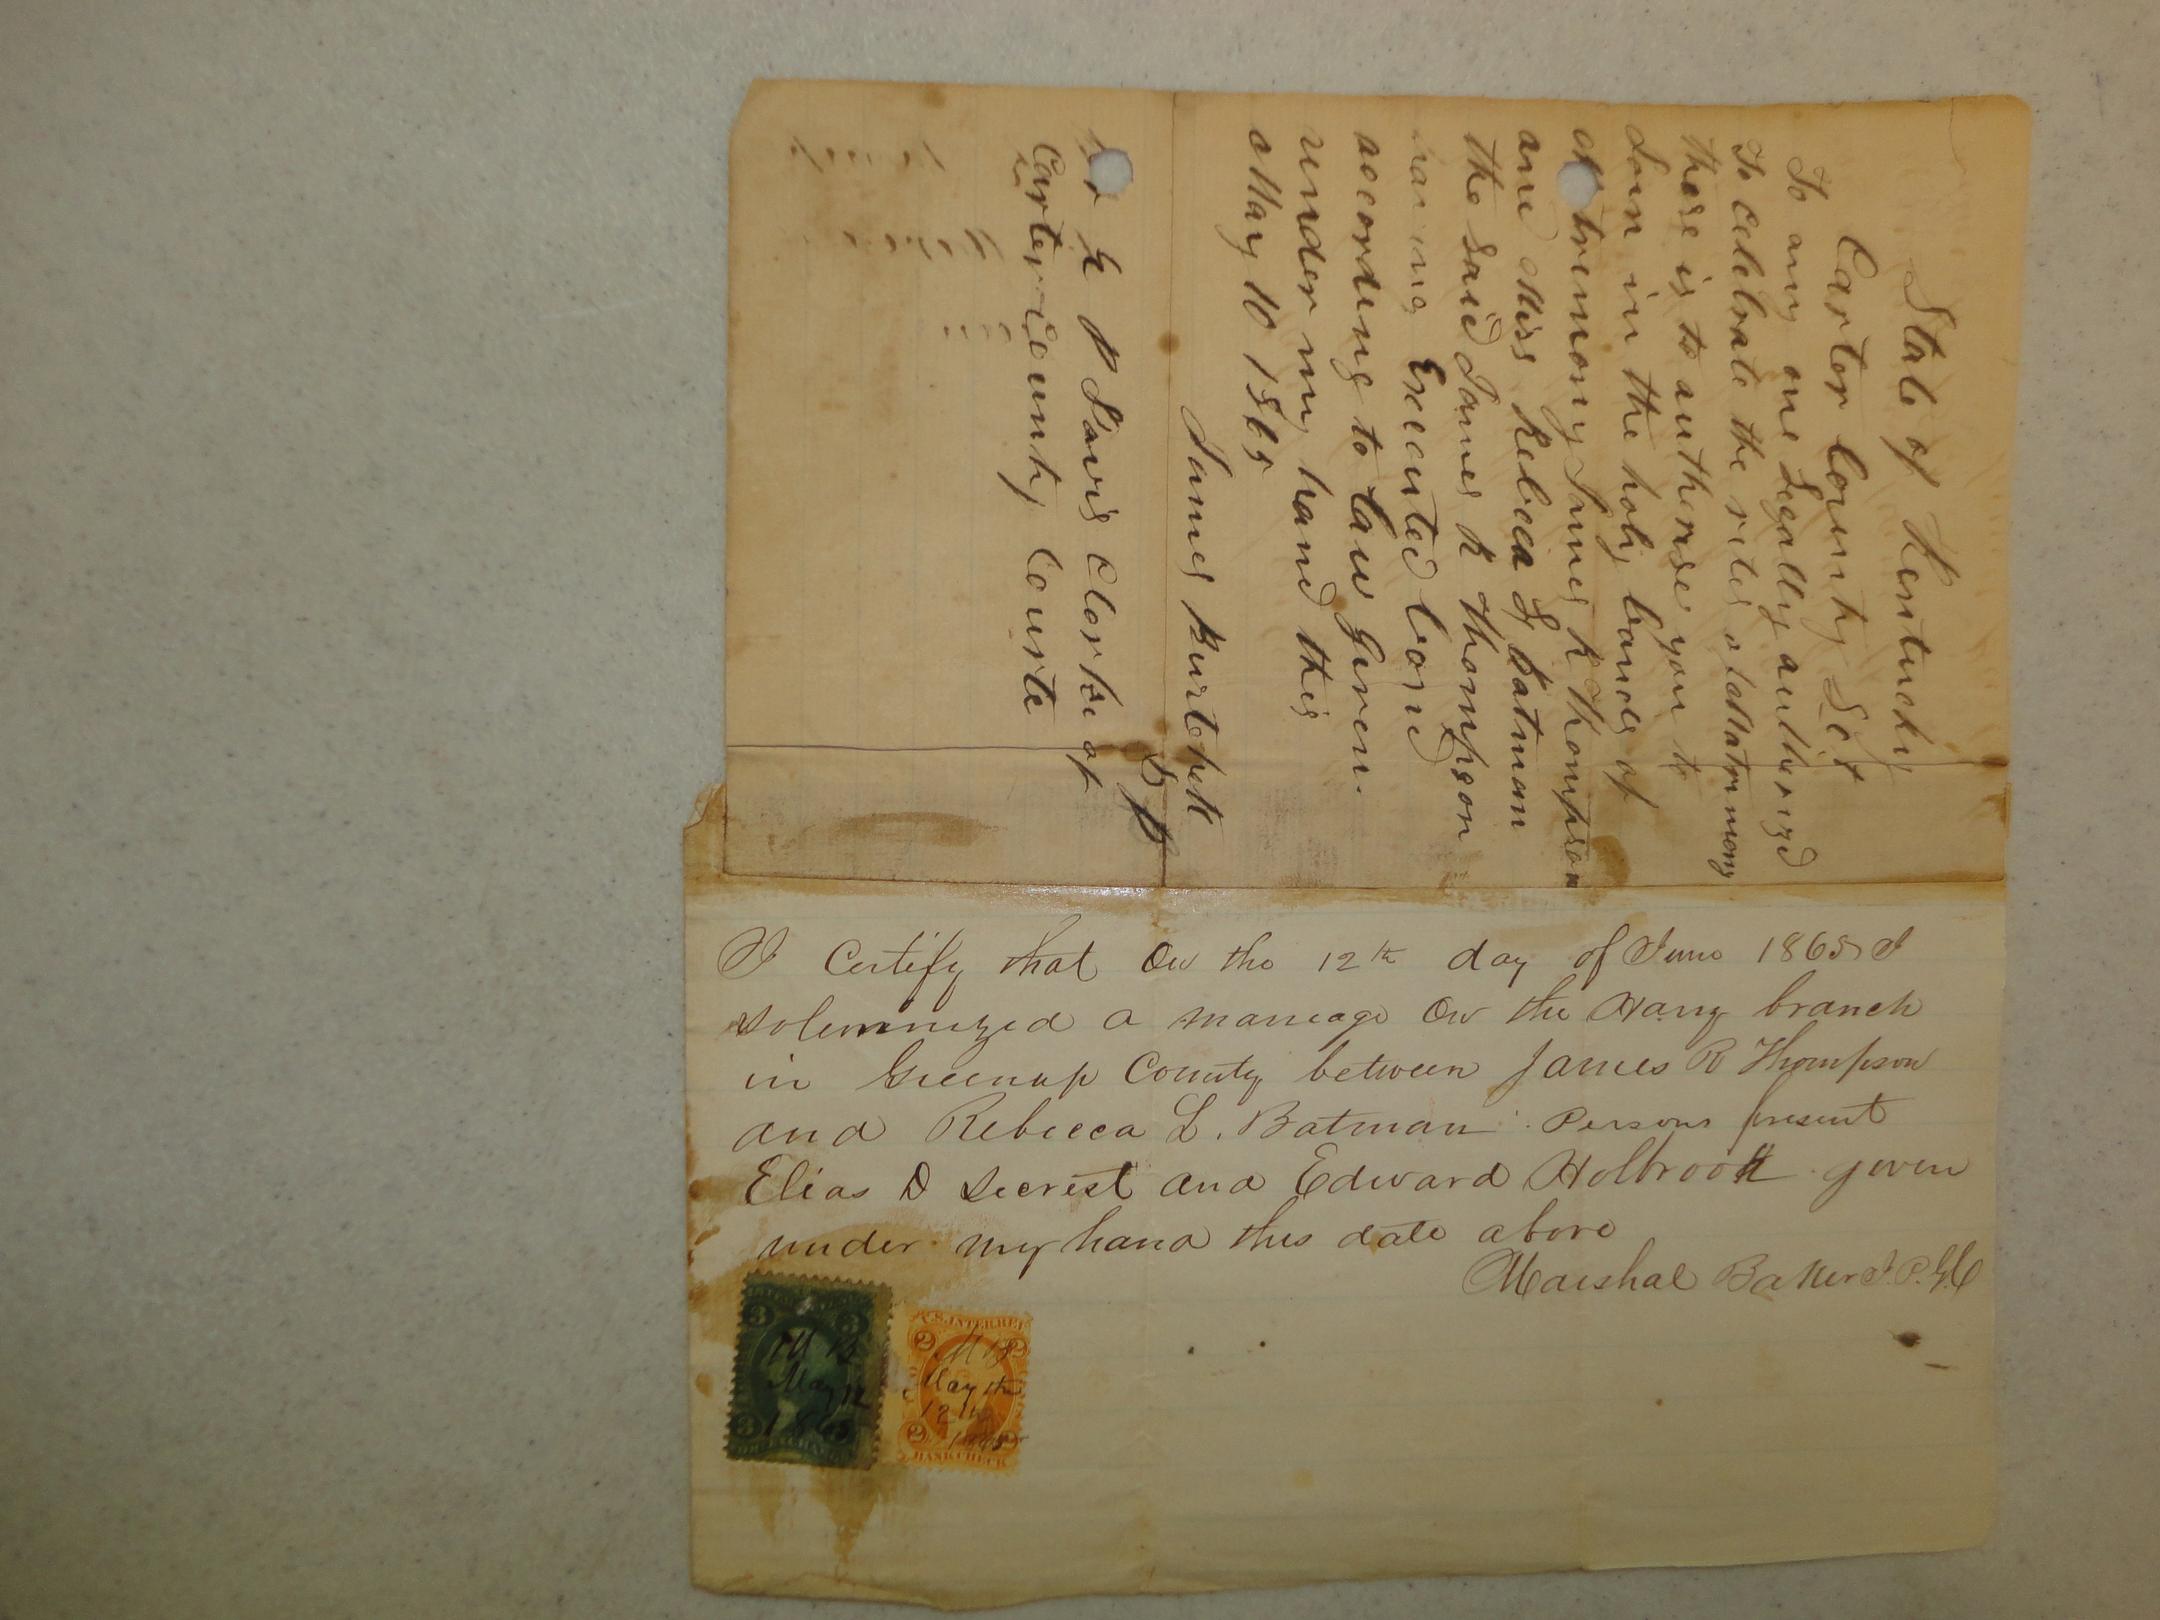 State of Kentucky
Carter County Sct
To any one Legally autherizd
To celebrate the rites of Matrimony
these is to autherise you to
Join in the holy bands of
trimony James R Thompson
and Miss Rebeca L Batman
the said James R Thompson
having Executed bond
according to law Given
under my hand this
May 10 1865
James Kurtchett
D P
for G P Davis Clerke of
Carter County Courte
I Certify that On the 12th day of June 1865 I
solemnized a marriage On the Hang branch
in Greenup County between James R Thompson
and Rebecca L. Batman Persons present
Elias D Secrest and Edward Holbrook given
under my hand this date above
Marshal Baker J.P.G.C
3 3
M B
May 12
1865
3 3
U.S. INTER.REV
2 2
M B
May the
12th
1865
2 2
BANK CHECK